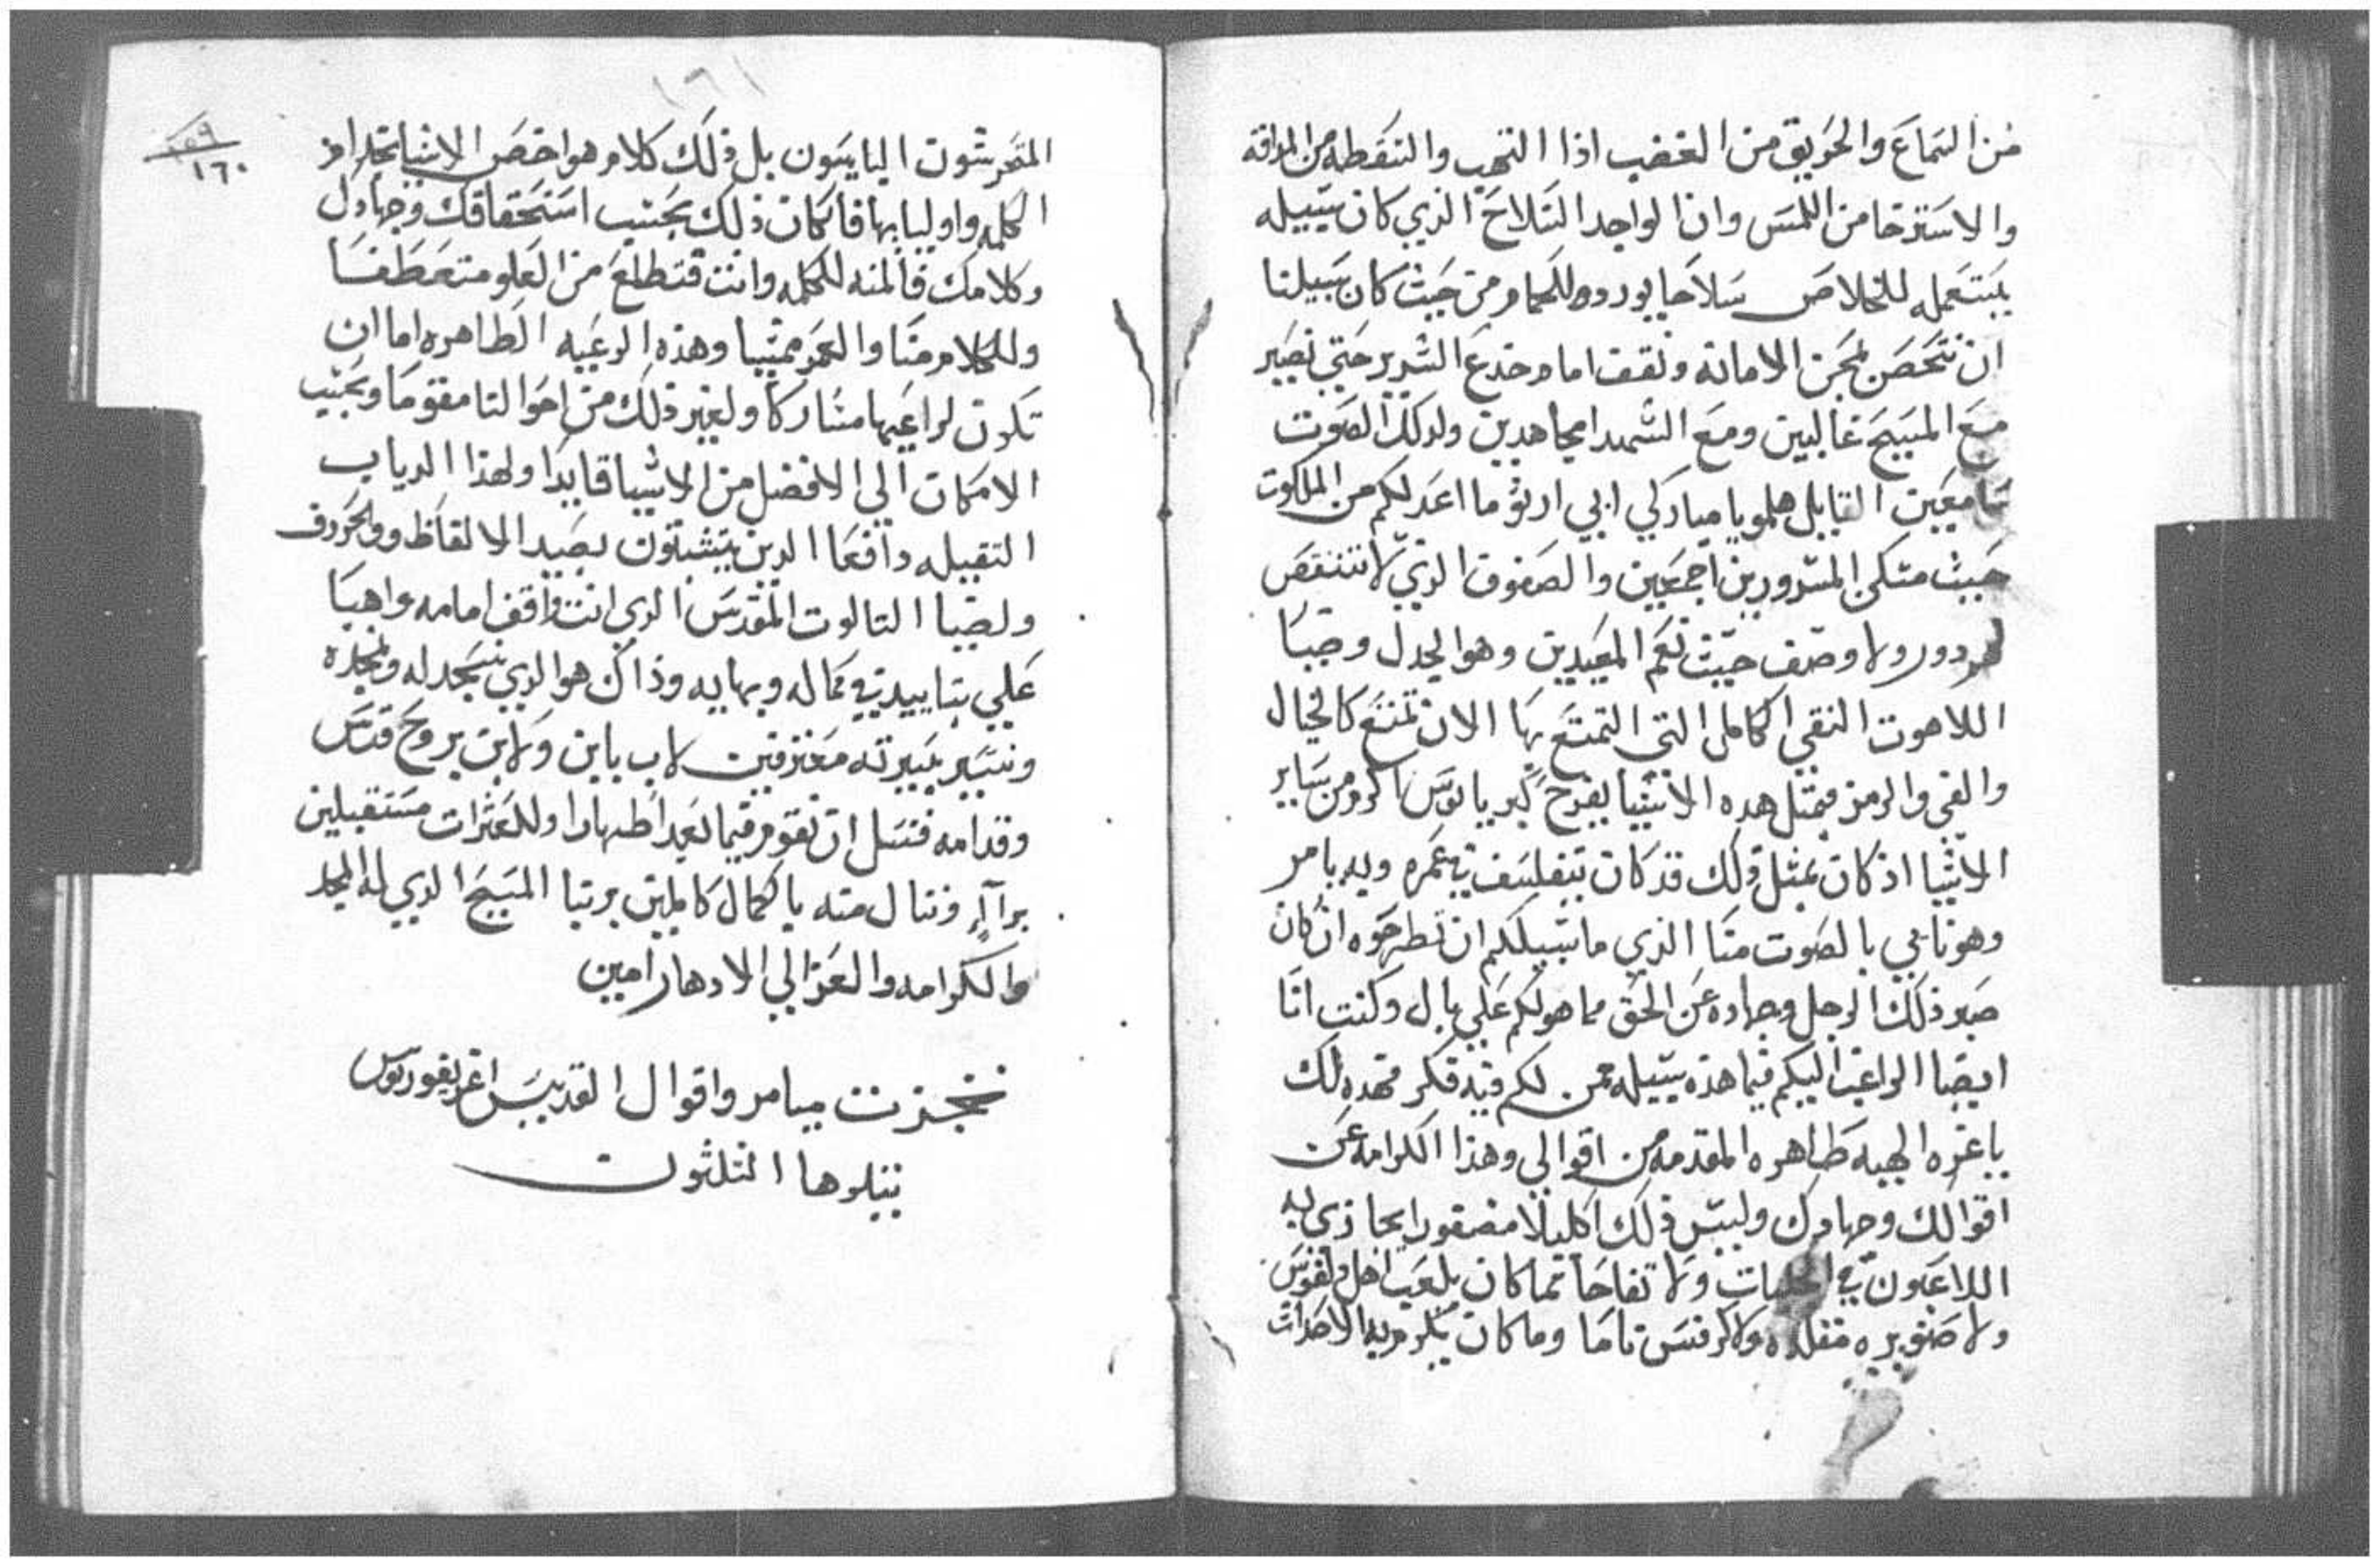 من السماع والحريق من الغضب اذا التهب والتنقطه من المراقه
والاسترخا من اللمس وان الواحد السلاح الذي كان سبيله
يستعمله للخلاص سلاحا يوردوه للحمام من حيث كان سبيلنا
ان نتحصن بمجن الامانه ونقف امام خدع الشرير حتي نصير
مع المسيح غالبين ومع الشهدا مجاهدين ولدلك الصوت
سامعين القايل هلمو يا مباركي ابي ارثو ما اعد لكم من الملكوت
حيث مسكن المسرورين اجمعين والصفوف الذي لا تنتقص
دور ولا وصف حيث نغم المعيدين وهو الجدل وضيا
اللاهوت النقي الكامل التي التمتع بها الان تمتع كالخيال
والفي والرمز فبمثل هده الاشيا يفرح كبريانوس اكرم من ساير
الاشيا اذ كان بمثل ذلك قد كان تيفلسف في عمره وبه يامر
وهو ناجي بالصوت منا الذي ما سبيلكم ان تطرحوه ان كان
صبر ذلك الرجل وجهاده عن الحق مما هو لكم علي بال وكنت انا
ايضا الراغب اليكم فيما هذه سبيله ممن لكم فيه فكر فهده لك
يا غره الهيه طاهره المقدمه من اقوالي وهذا الكرامه عن
اقوالك وجهادك وليس ذلك اكليلا مضفورا بحازي به
اللاعبون في الحلبات ولا تفاحا مما كان يلعب اهل ذلفوس
ولا صنوبره مفلده ولا كرفس تاما وما كان يكرم به الاحداث
١٦١
١٦٠
المتحرشون اليايسون بل ذلك كلام هو اخص الاشيا بخدام
الكلمه واوليايها فان كان ذلك بحسب استحقاقك وجهادك
وكلامك فالمنه للكلمه وانت فتطلع من العلو متعطفا
وللكلام منا والعمر ممشيا وهذه الرعيه الطاهره اما ان
تكون لراعيها مشاركا ولغير ذلك من احوالنا مقوما وبحسب
الامكان الي الافضل من الاشيا قايدا ولهذا الدياب
الثقيله دافعا الدين يتشبثون بصيد الالفاظ والحروف
ولضيا التالوت المقدس الدي انت واقف امامه واهبا
علي بتاييد في كماله وبهايه وذاك هو الدي نسجد له ونمجده
ونسير بسيرته معترفين لاب بابن ولابن بروح قدس
وقدامه فنسل ان نقوم فيما بعد اطهارا وللعثرات مستقبلين
برآآء وننال منه بالكمال كاملين بربنا المسيح الدي له المجد
والكرامه والعز الي الادهار امين
نجزت ميامر واقوال القديس اغريغوريوس
يتلوها التلثون